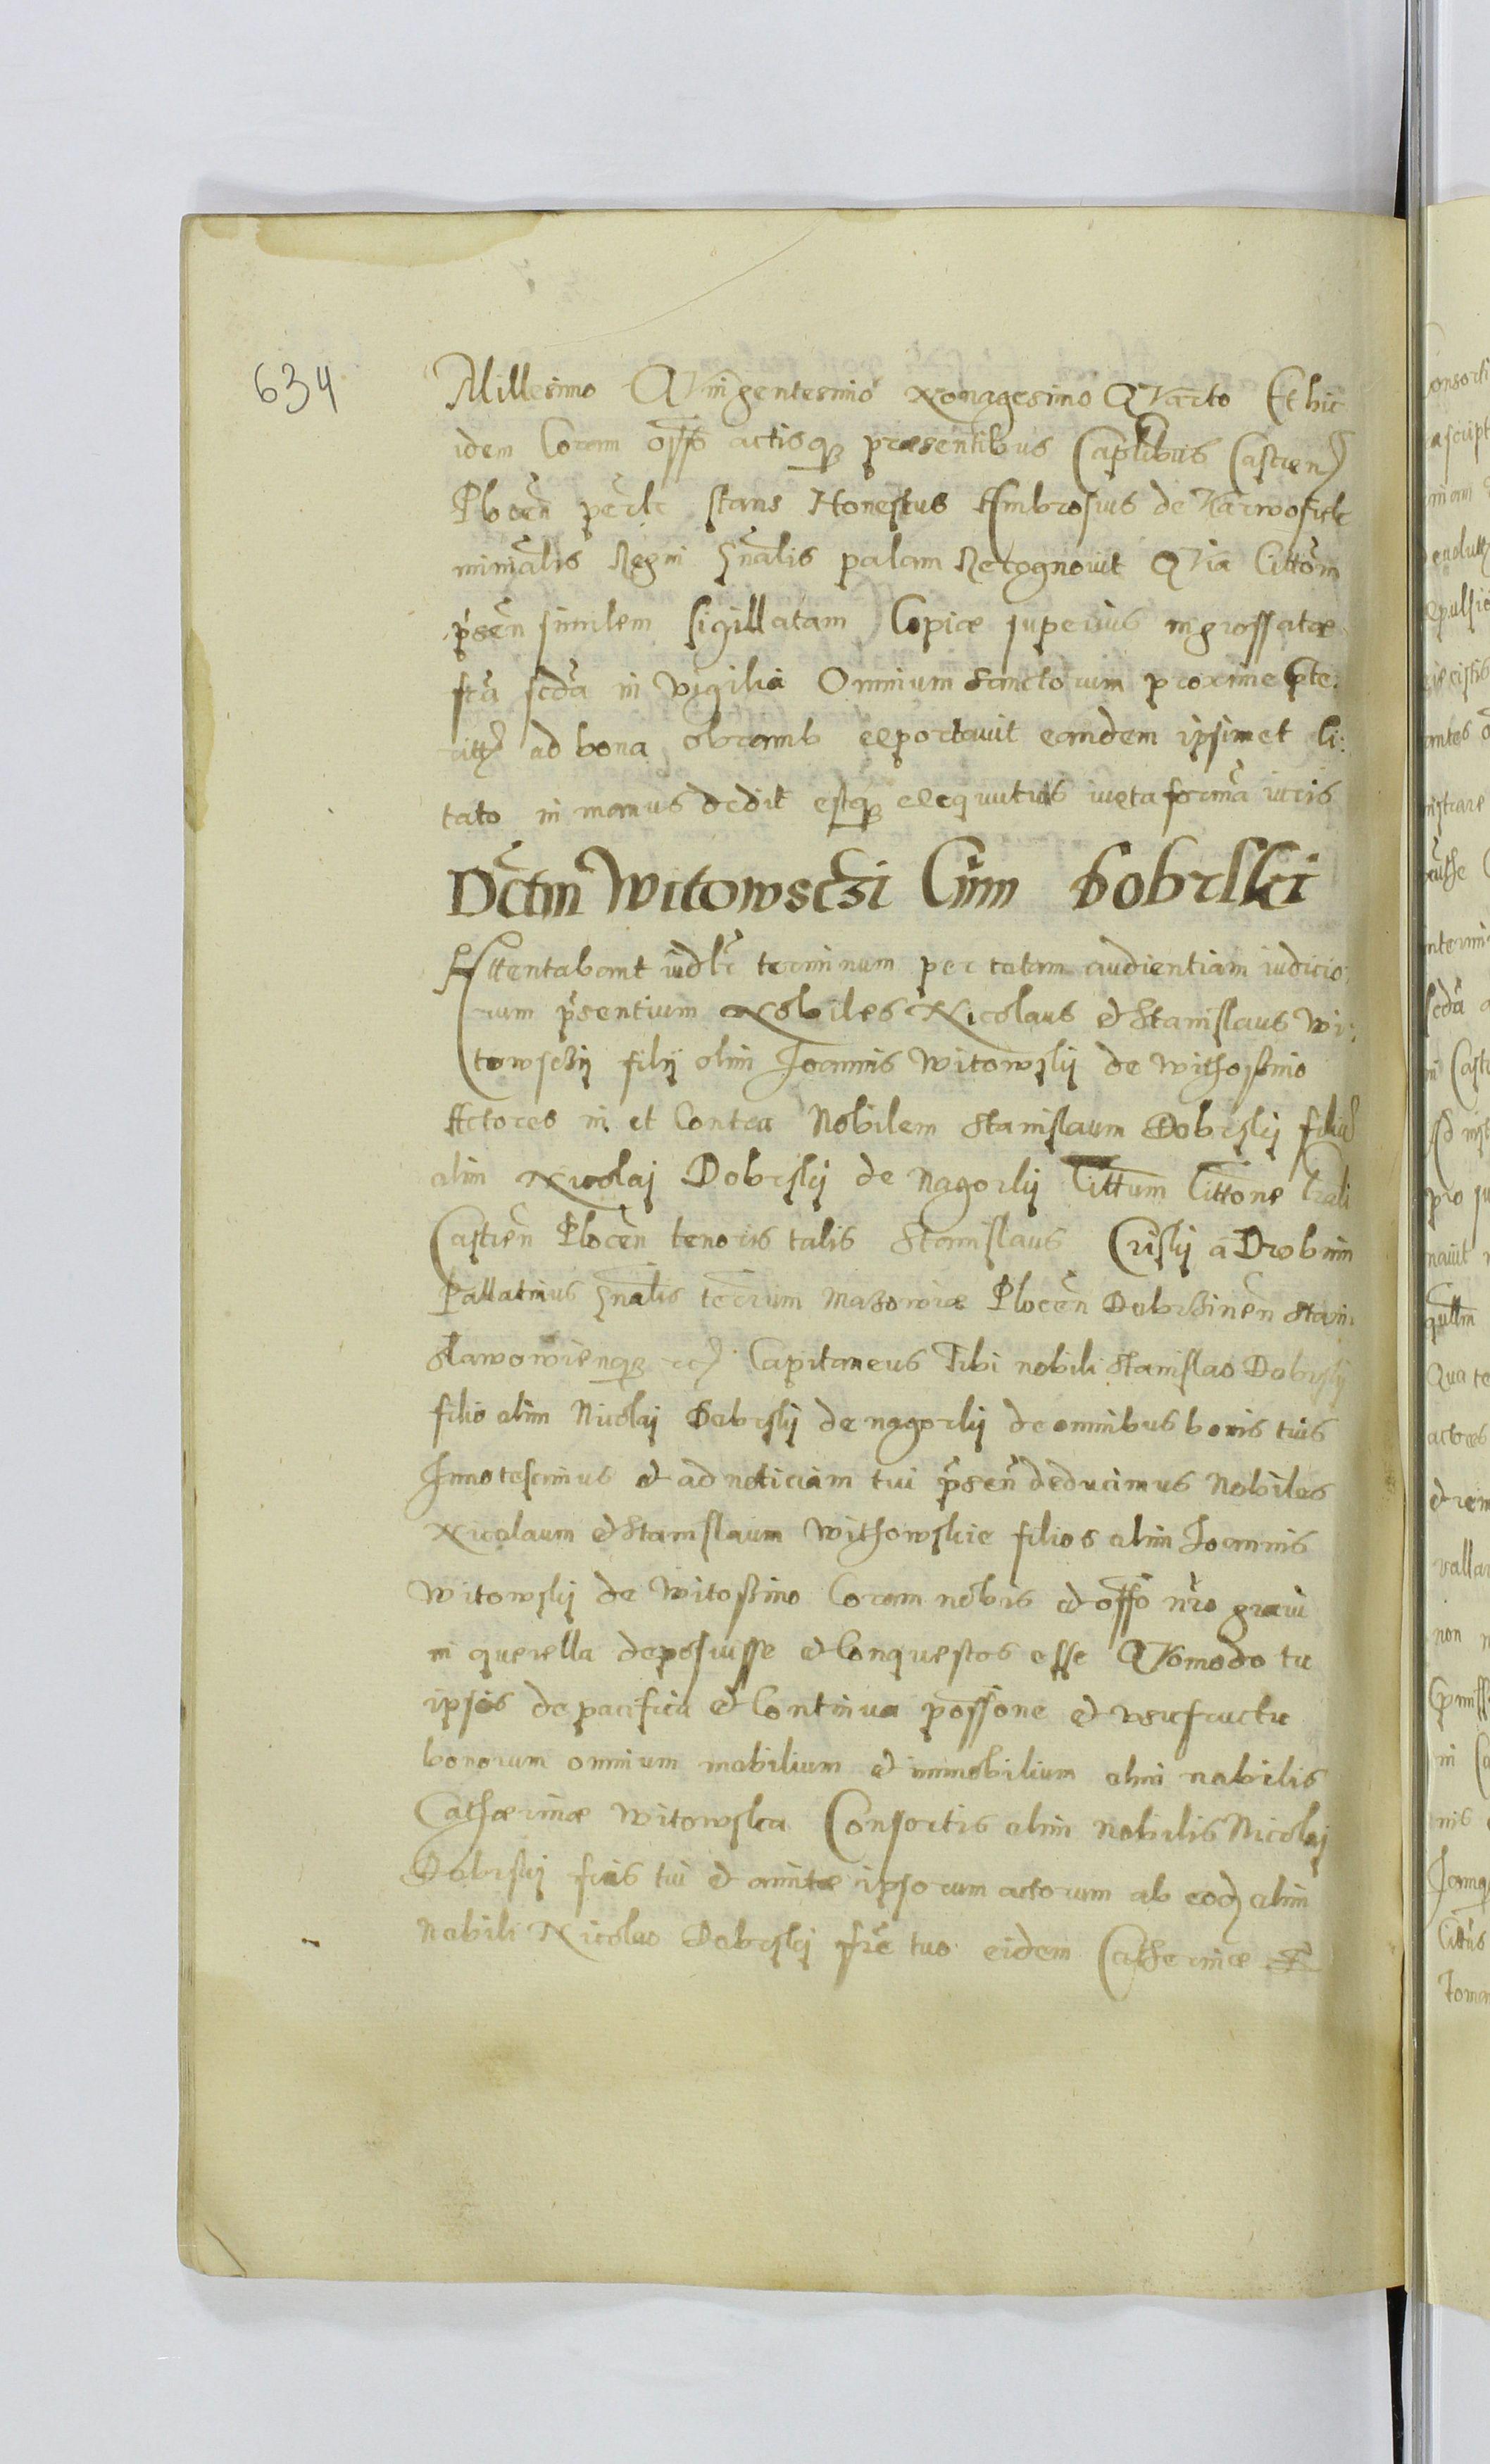 634
Millesimo QVingentesimo Nonagesimo QVarto Et hic
idem Coram offo actisq3 præsentibus Caplibus Castren
Plocen perlr stans Honestus Ambrosius de Karwosieki
minralis Regni gnalis palam Recognouit QVia Citton
psen similem sigillatam Copiæ superius ingrossatæ
fria scda in vigilia Omnium Sanctorum proxime pte:
ritt ad bona obramb exportauit eandem ipsimet Ci:
tato in manus dedit estq3 exequutus iuxta forma iuris
Dctm Witowsczi Cum Dobrski
Attentabant iudlr terminum per totam audientiam iudicio:
rum psentium Nobiles Nicolaus et Stanislaus Wi:
towsczij filij olim Joannis Witowskij de Withoszino
Actores in et Contra Nobilem Stanislaum Dobrskij filiu
olim Nicolaj Dobrskij de Nagorkij Cittum Cittone Crali
Castren Plocen tenoris talis Stanislaus Criskij a Drobnin
Pallatinus gnalis terrum Mazowiæ Plocen Dobrzinen Stani
slawowienq3 etc Capitaneus Tibi nobili Stanislao Dobrskij
filio olim Nicolaj Dobrskij de nagorkij de omnibus bonis tuis
Innotescimus et ad noticiam tui psen deducimus Nobiles
Nicolaum et Stanislaum Withowskie filios olim Joannis
Witowskij de Witoszino Coram nobis et offo nro graui
in querella deposuisse et Conquestos esse QVomodo tu
ipsos de pacifica et Continua possone et vsufructu
bonorum omnium mobilium et immobilium olim nobilis
Catharinæ Witowska Consortis olim Nobilis Nicolaj
Dobrskij fris tui et amitæ ipsorum actorum ab eod olim
Nobili Nicolao Dobrskij fre tuo eidem Catherinæ